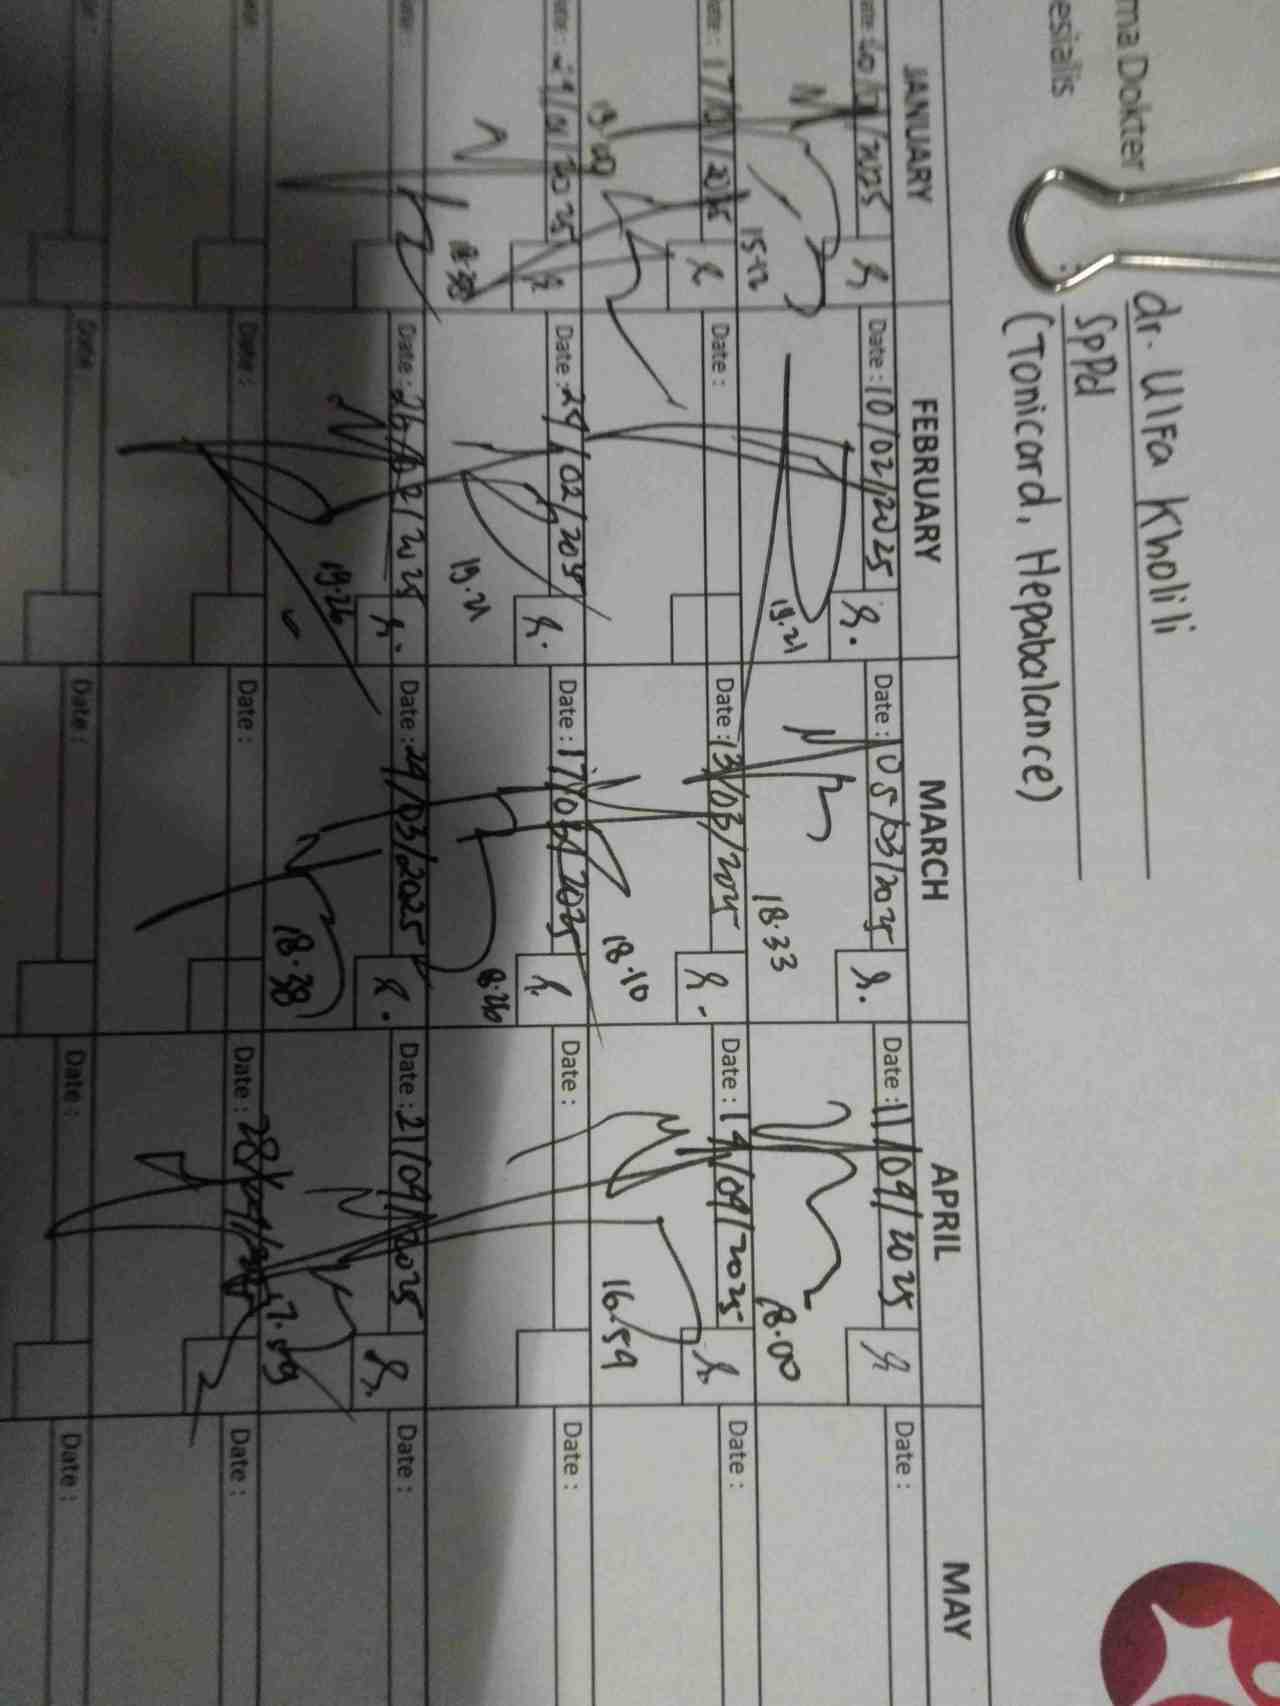 ma Dokter dr. Ulfa Kholili
esialis : SpPd
(Tonicard, Hepabalance)
JANUARY FEBRUARY MARCH APRIL MAY
Date: /2025 Date: 10/02/2025 Date: 05/03/2025 Date: 11/04/2025 Date:
15.12 19.21 18.33 18.00
Date: 17/01/2025 Date: Date: 13/03/2025 Date: 14/04/2025 Date:
19.09 18.10 16.59
Date: 24/01/2025 Date: 24/02/2025 Date: 17/03/2025 Date: Date:
18.38 19.21 18.26
Date: Date: 26/02/2025 Date: 24/03/2025 Date: 21/04/2025 Date:
19.26 18.38 17.59
Date: Date: Date: 28/04/ Date:
Date: Date: Date: Date: